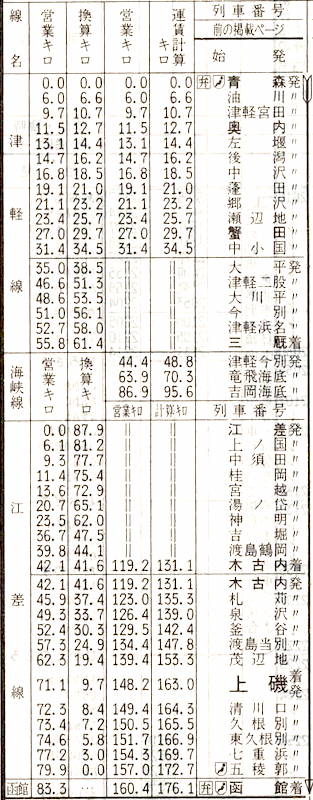 線名 営業キロ 換算キロ 営業キロ 運賃計算キロ 列車番号
前の掲載ページ
始発
津軽線
0.0 0.0 0.0 0.0 弁 青森発
6.0 6.6 6.0 6.6 油川〃
9.7 10.7 9.7 10.7 津軽宮田〃
11.5 12.7 11.5 12.7 奥内〃
13.1 14.4 13.1 14.4 左堰〃
14.7 16.2 14.7 16.2 後潟〃
16.8 18.5 16.8 18.5 中沢〃
19.1 21.0 19.1 21.0 蓬田〃
21.1 23.2 21.1 23.2 郷沢〃
23.4 25.7 23.4 25.7 瀬辺地〃
27.0 29.7 27.0 29.7 蟹田〃
31.4 34.5 31.4 34.5 中小国〃
35.0 38.5 || || 大平発
46.6 51.3 || || 津軽二股〃
48.6 53.5 || || 大川平〃
51.0 56.1 || || 今別〃
52.7 58.0 || || 津軽浜名〃
55.8 61.4 || || 三厩着
海峡線 営業キロ 換算キロ
44.4 48.8 津軽今別発
63.9 70.3 竜飛海底〃
86.9 95.6 吉岡海底〃
営業キロ 計算キロ 列車番号
江差線
0.0 87.9 || || 江差発
6.1 81.2 || || 上ノ国〃
9.3 77.7 || || 中須田〃
11.4 75.4 || || 桂岡〃
13.6 72.9 || || 宮越〃
20.7 65.1 || || 湯ノ岱〃
23.5 62.0 || || 神明〃
36.7 47.5 || || 吉堀〃
39.8 44.1 || || 渡島鶴岡〃
42.1 41.6 119.2 131.1 木古内着
42.1 41.6 119.2 131.1 木古内発
45.9 37.4 123.0 135.3 札苅〃
49.3 33.7 126.4 139.0 泉沢〃
52.4 30.3 129.5 142.4 釜谷〃
57.3 24.9 134.4 147.8 渡島当別〃
62.3 19.4 139.4 153.3 茂辺地〃
71.1 9.7 148.2 163.0 上磯着発
72.3 8.4 149.4 164.3 清川口〃
73.4 7.2 150.5 165.5 久根別〃
74.6 5.8 151.7 166.9 東久根別〃
77.2 3.0 154.3 169.7 七重浜〃
79.9 0.0 157.0 172.7 五稜郭〃
函館 83.3 … 160.4 176.1 弁 函館着